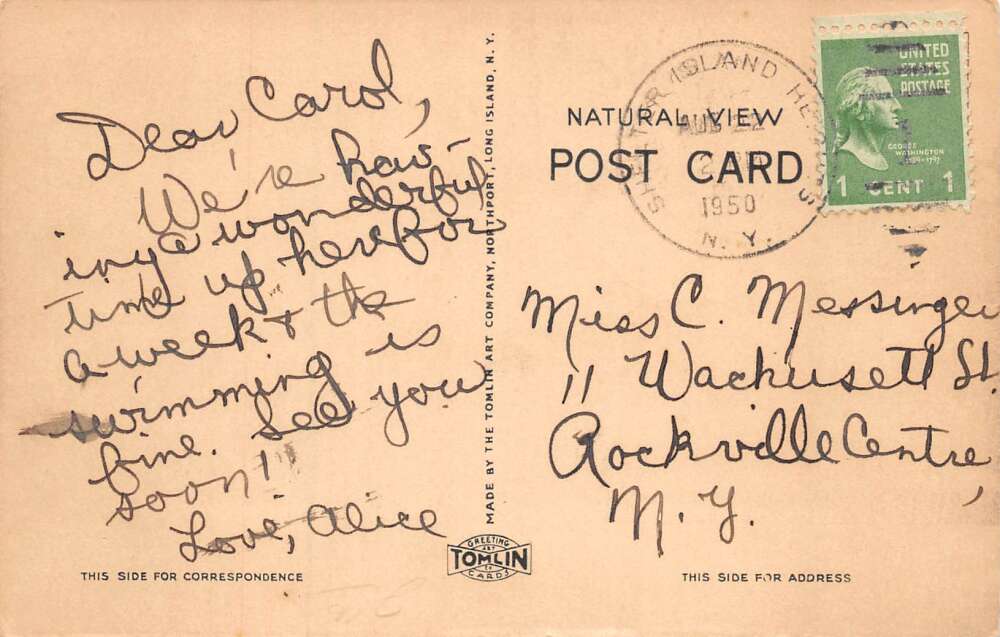 Dear Carol,
We're hav-
ing a wonderful
time up here for
a week & the
swimming is
fine. See you
soon!!
Love, Alice
THIS SIDE FOR CORRESPONDENCE
MADE BY THE TOMLIN ART COMPANY, NORTHPORT, LONG ISLAND, N. Y.
GREETING
ART
TOMLIN
CARDS
NATURAL VIEW
POST CARD
SHELTER ISLAND HEIGHTS
AUG 22
1950
N. Y.
UNITED
STATES
POSTAGE
GEORGE
WASHINGTON
1789-1797
1 CENT 1
Miss C. Messinger
11 Wachusett St.
Rockville Centre,
N. Y.
THIS SIDE FOR ADDRESS